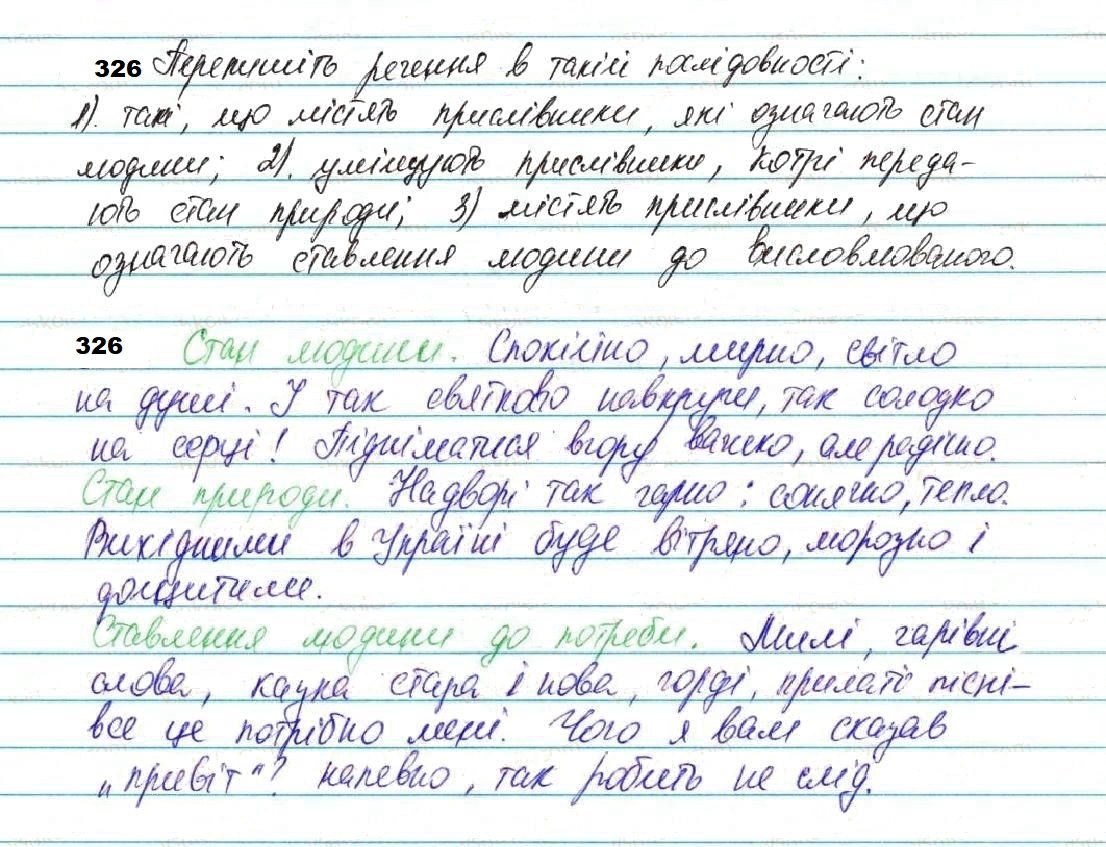 326 Перепишіть речення в такій послідовності:
1). такі, що містять прислівники, які означають стан
людини; 2). уміщують прислівники, котрі переда-
ють стан природи; 3) містять прислівники, що
означають ставлення людини до висловлюваного.
326 Стан людини. Спокійно, мирно, світло
на душі. І так святково навкруги, так солодко
на серці! Підніматися вгору важко, але радісно.
Стан природи. Надворі так гарно: сонячно, тепло.
Вихідними в Україні буде вітряно, морозно і
дощитиме.
Ставлення людини до потреби. Милі, чарівні
слова, казка стара і нова, горді, крилаті пісні–
все це потрібно мені. Чого я вам сказав
„привіт“? напевно, так робить не слід.